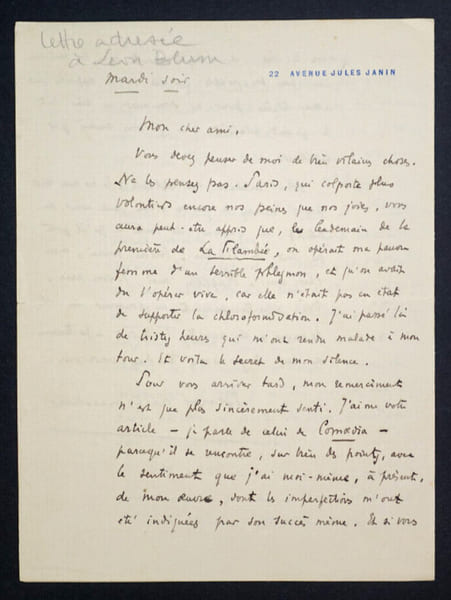 lettre adressée
à Léon Blum
22 AVENUE JULES JANIN
Mardi soir
Mon cher ami,
Vous devez penser de moi de bien vilaines choses.
Ne les pensez pas. Paris, qui colporte plus
volontiers encore nos peines que nos joies, vous
aura peut-être appris que, le lendemain de la
première de La Flambée, on opérait ma pauvre
femme d'un terrible phlegmon, et qu'on avait
dû l'opérer vive, car elle n'était pas en état
de supporter la chloroformisation. J'ai passé là
de tristes heures qui m'ont rendu malade à mon
tour. Et voilà le secret de mon silence.
Pour vous arriver tard, mon remerciement
n'est que plus sincèrement senti. J'aime votre
article — je parle de celui de Comœdia —
parcequ'il se rencontre, sur bien des points, avec
le sentiment que j'ai moi-même, à présent,
de mon œuvre, dont les imperfections m'ont
été indiquées par son succès même. Et si vous